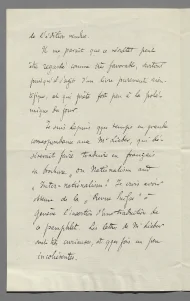 de l'éditeur vendre.
Il me paraît que ce résultat peut
être regardé comme très favorable, surtout
puisqu'il s'agit d'un livre purement
et qui prête fort peu à la polé-
mique du jour.
Je suis depuis quelque temps en grande
correspondance avec Mr Lieber, qui dé-
sirerait faire traduire en français
sa brochure, ou Nationalism and
"Inter-nationalism". Je crois avoir
de la "Revue Suisse" à
Genève l'insertion d'une traduction de
ce pamphlet. Les lettres de Mr Lieber
sont très curieuses, et quelquefois un peu
incohérentes.